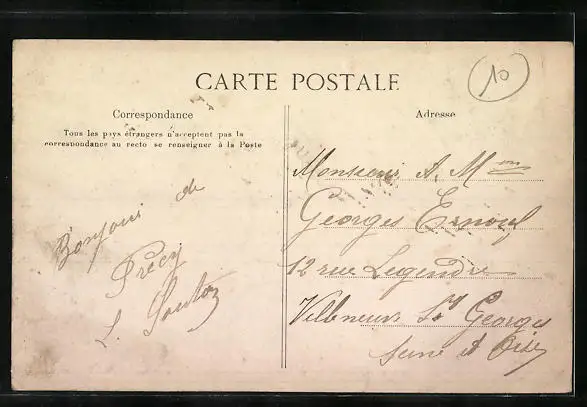 10
CARTE POSTALE
Correspondance
Tous les pays étrangers n'acceptent pas la
correspondance au recto se renseigner à la Poste
Adresse
Bonjour de
Précy
L. 
Monsieur A. Mme
Georges Ernoul
12 rue Legendre
Villeneuve St Georges
Seine et Oise